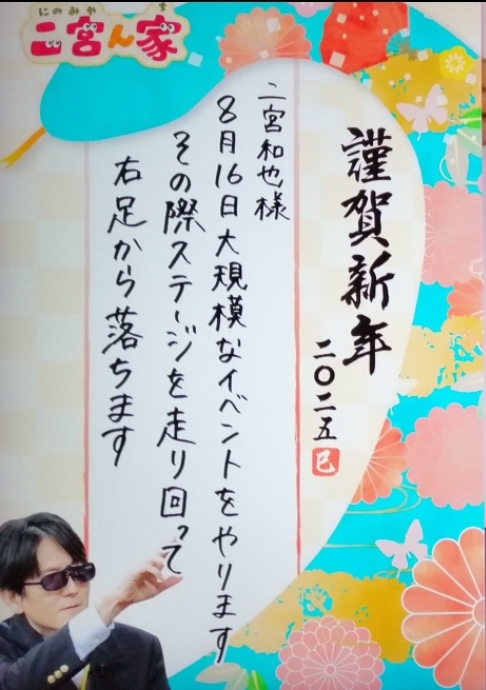 にのみやんち
二宮ん家
謹賀新年
二〇二五 巳
二宮和也様
8月16日大規模なイベントをやります
その際ステージを走り回って
右足から落ちます